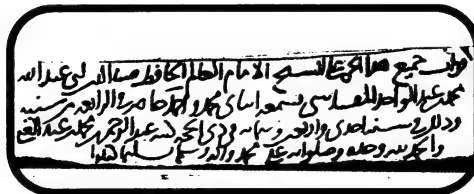 قرات جميع هذا الجزء على الشيخ الامام العالم الحافظ ضيا الدين ابي عبد الله
محمد بن عبد الواحد المقدسي فسمعه ابناي محمد واحمد حاضر في الرابعة من سنه
وذلك في سنه احدى واربعين وستمايه في ذي الحجه كتبه عبد الرحمن بن محمد بن عبد الغني
والحمد لله وحده وصلواته على محمد واله وسلم تسليما كثيرا